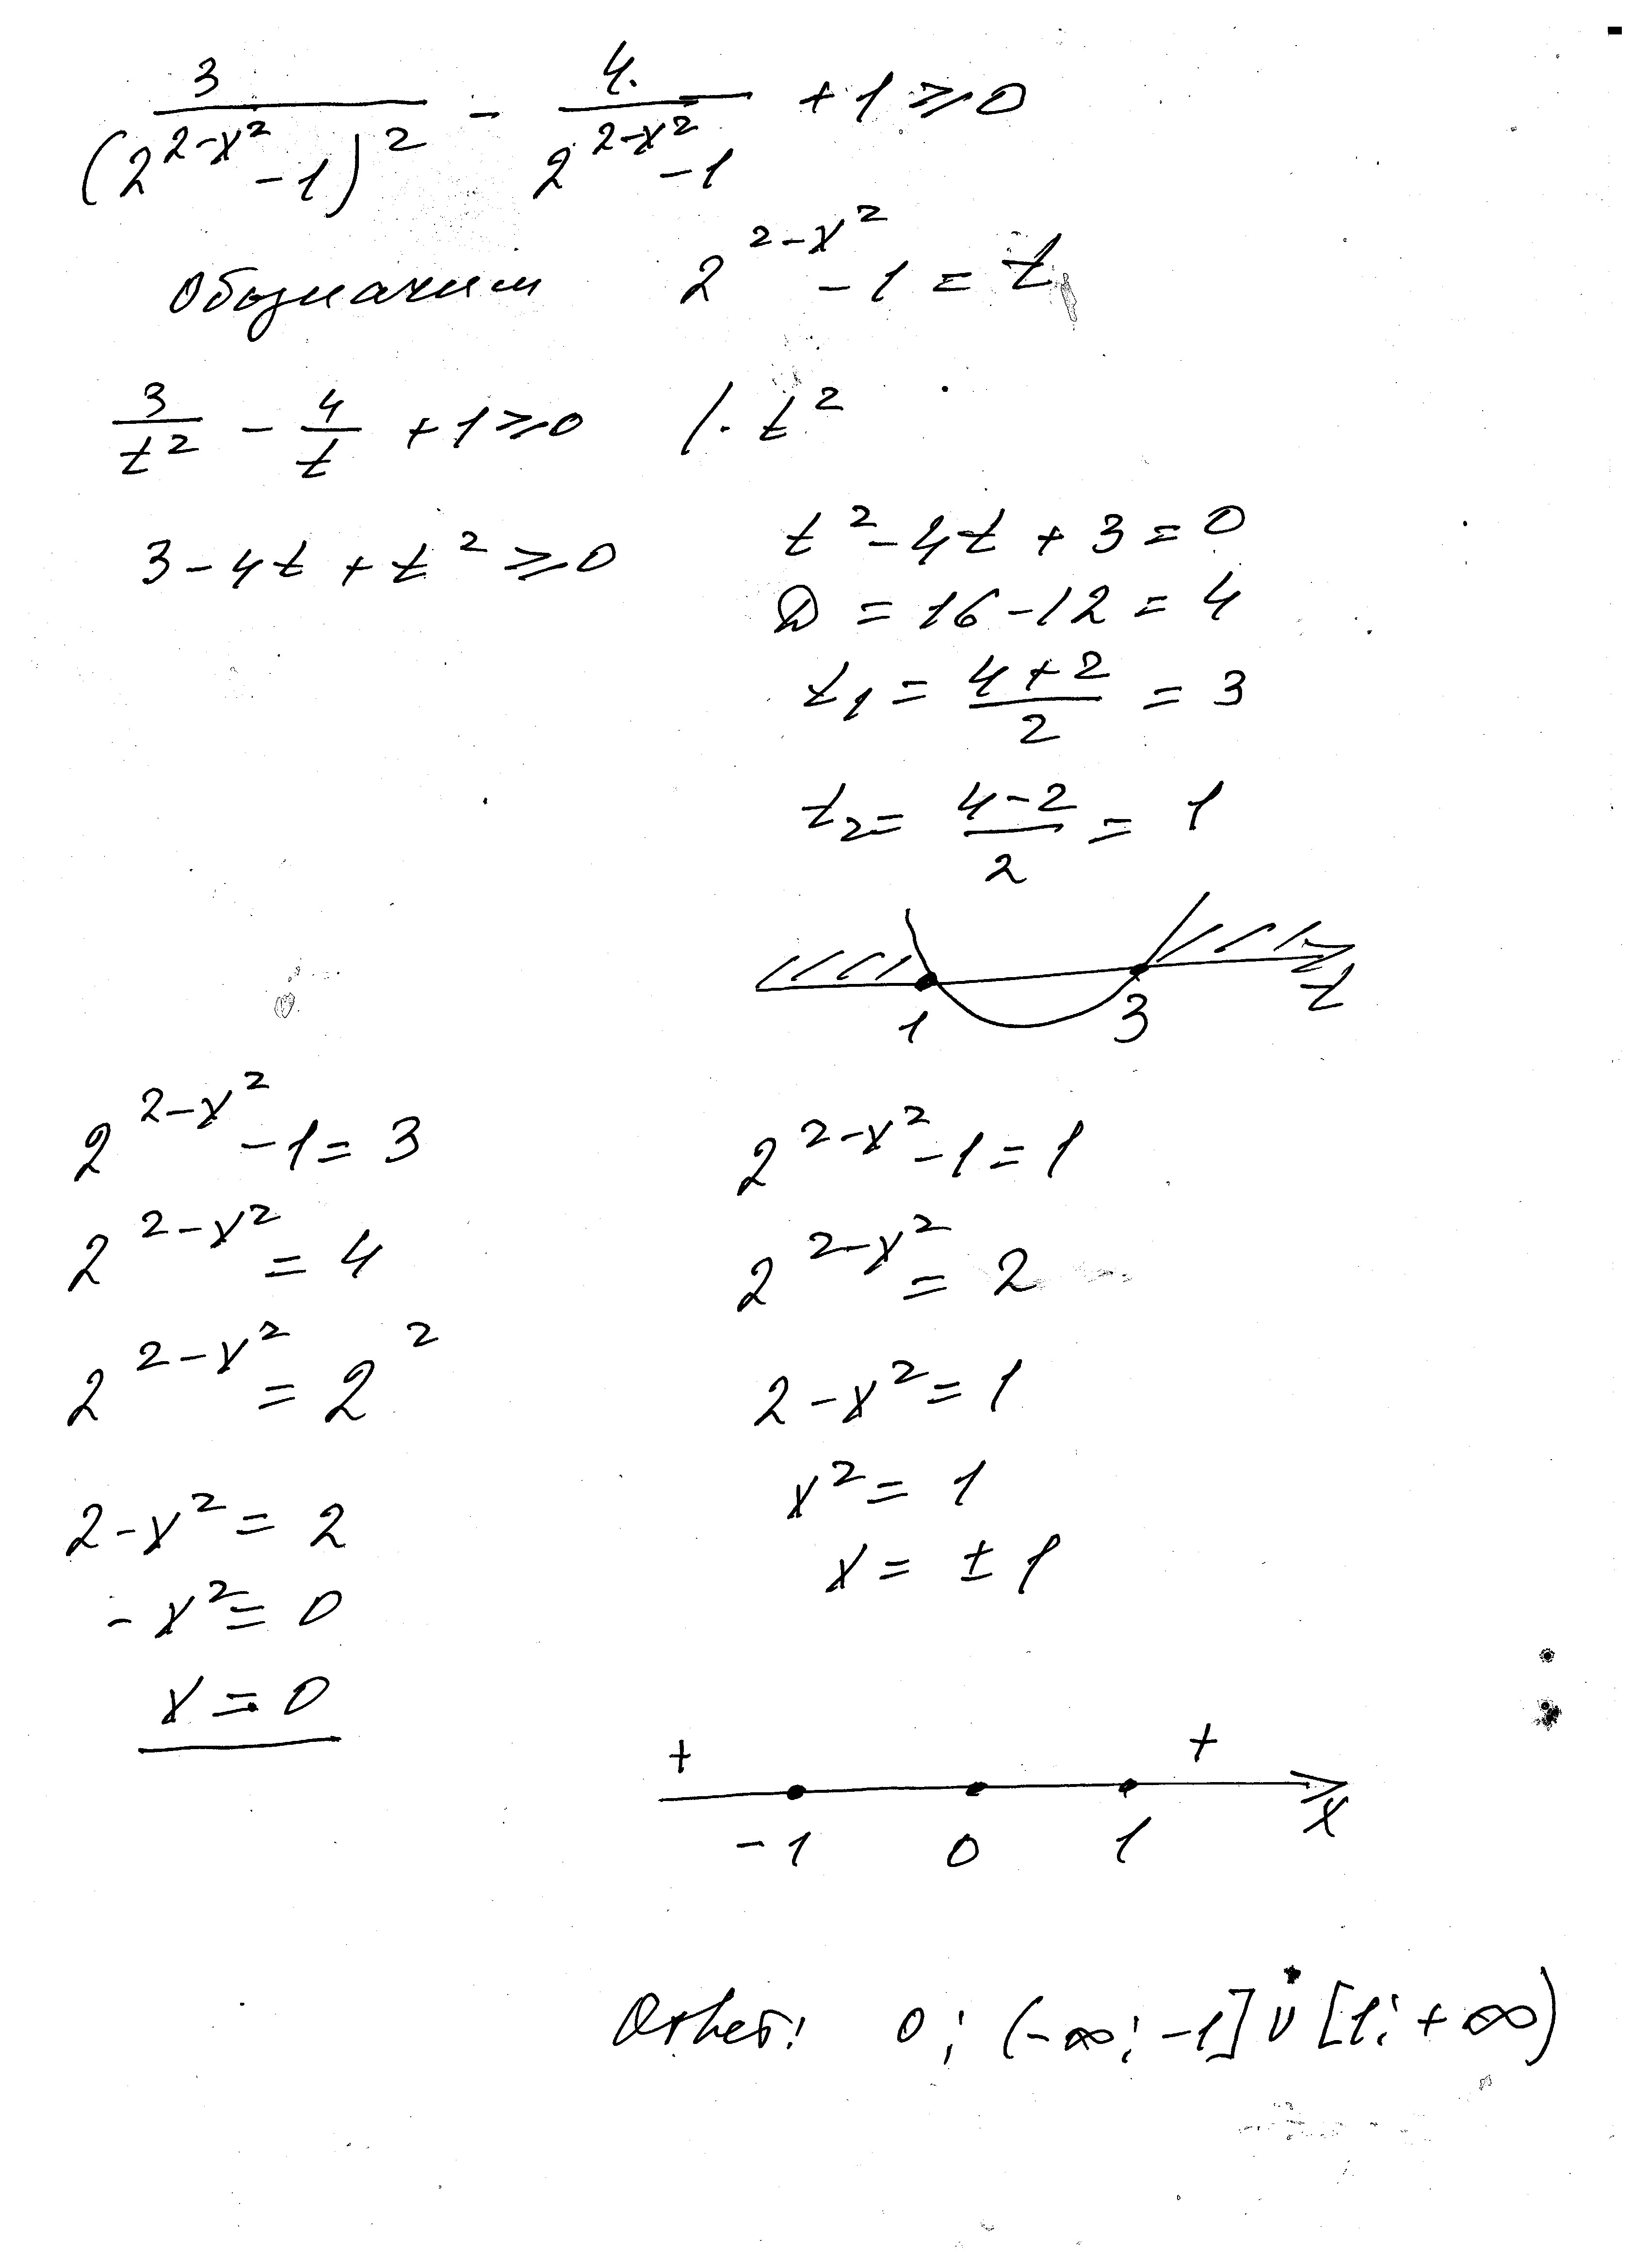 3/(2^(2-x²) - 1)² - 4/(2^(2-x²) - 1) + 1 ⩾ 0
Обозначим 2^(2-x²) - 1 = t
3/t² - 4/t + 1 ⩾ 0 /· t²
3 - 4t + t² ⩾ 0
t² - 4t + 3 = 0
D = 16 - 12 = 4
t₁ = (4+2)/2 = 3
t₂ = (4-2)/2 = 1
1 3 t
2^(2-x²) - 1 = 3
2^(2-x²) = 4
2^(2-x²) = 2²
2 - x² = 2
- x² = 0
x = 0
2^(2-x²) - 1 = 1
2^(2-x²) = 2
2 - x² = 1
x² = 1
x = ± 1
+ +
-1 0 1 x
Ответ: 0; (-∞; -1] ∪ [1; +∞)